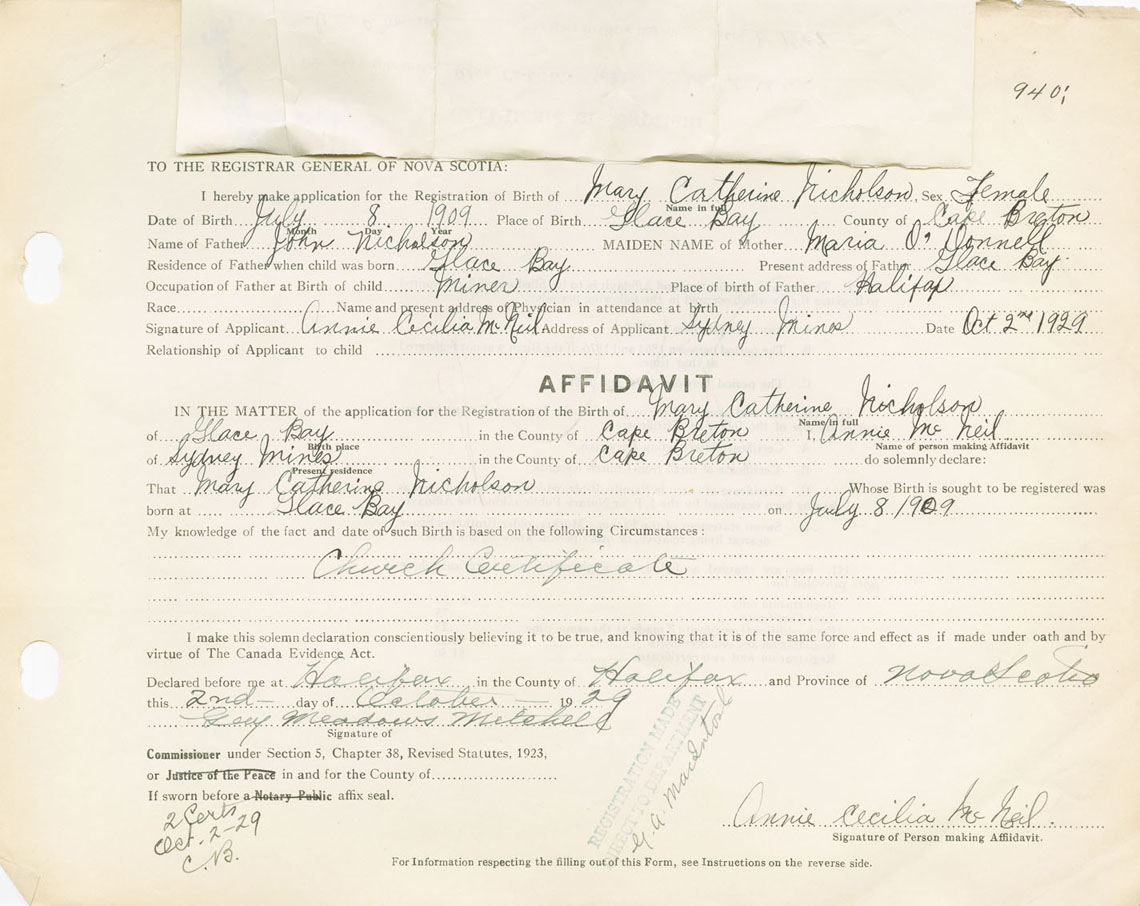 940
TO THE REGISTRAR GENERAL OF NOVA SCOTIA:
I hereby make application for the Registration of Birth of Mary Catherine Nicholson, Sex Female
Name in full
Date of Birth July 8 1909 Place of Birth Glace Bay County of Cape Breton
Month Day Year
Name of Father John Nicholson MAIDEN NAME of Mother Maria O'Donnell
Residence of Father when child was born Glace Bay Present address of Father Glace Bay
Occupation of Father at Birth of child Miner Place of birth of Father Halifax
Race Name and present address of Physician in attendance at birth
Signature of Applicant Annie Cecilia McNeil Address of Applicant Sydney Mines Date Oct 2nd 1929
Relationship of Applicant to child
AFFIDAVIT
IN THE MATTER of the application for the Registration of the Birth of Mary Catherine Nicholson
Name in full
of Glace Bay in the County of Cape Breton I, Annie McNeil
Birth place Name of person making Affidavit
of Sydney Mines in the County of Cape Breton do solemnly declare:
Present residence
That Mary Catherine Nicholson Whose Birth is sought to be registered was
born at Glace Bay on July 8 1909
My knowledge of the fact and date of such Birth is based on the following Circumstances:
Church Certificate
I make this solemn declaration conscientiously believing it to be true, and knowing that it is of the same force and effect as if made under oath and by
virtue of The Canada Evidence Act.
Declared before me at Halifax in the County of Halifax and Province of Nova Scotia
this 2nd day of October 1929
Guy Meadows Mitchell
Signature of
Commissioner under Section 5, Chapter 38, Revised Statutes, 1923,
or Justice of the Peace in and for the County of
If sworn before a Notary Public affix seal.
2 Certs
Oct-2-29
C.B.
REGISTRATION MADE
DIRECT TO DEPARTMENT
G. A. MacIntosh
Annie Cecilia McNeil.
Signature of Person making Affiidavit.
For Information respecting the filling out of this Form, see Instructions on the reverse side.